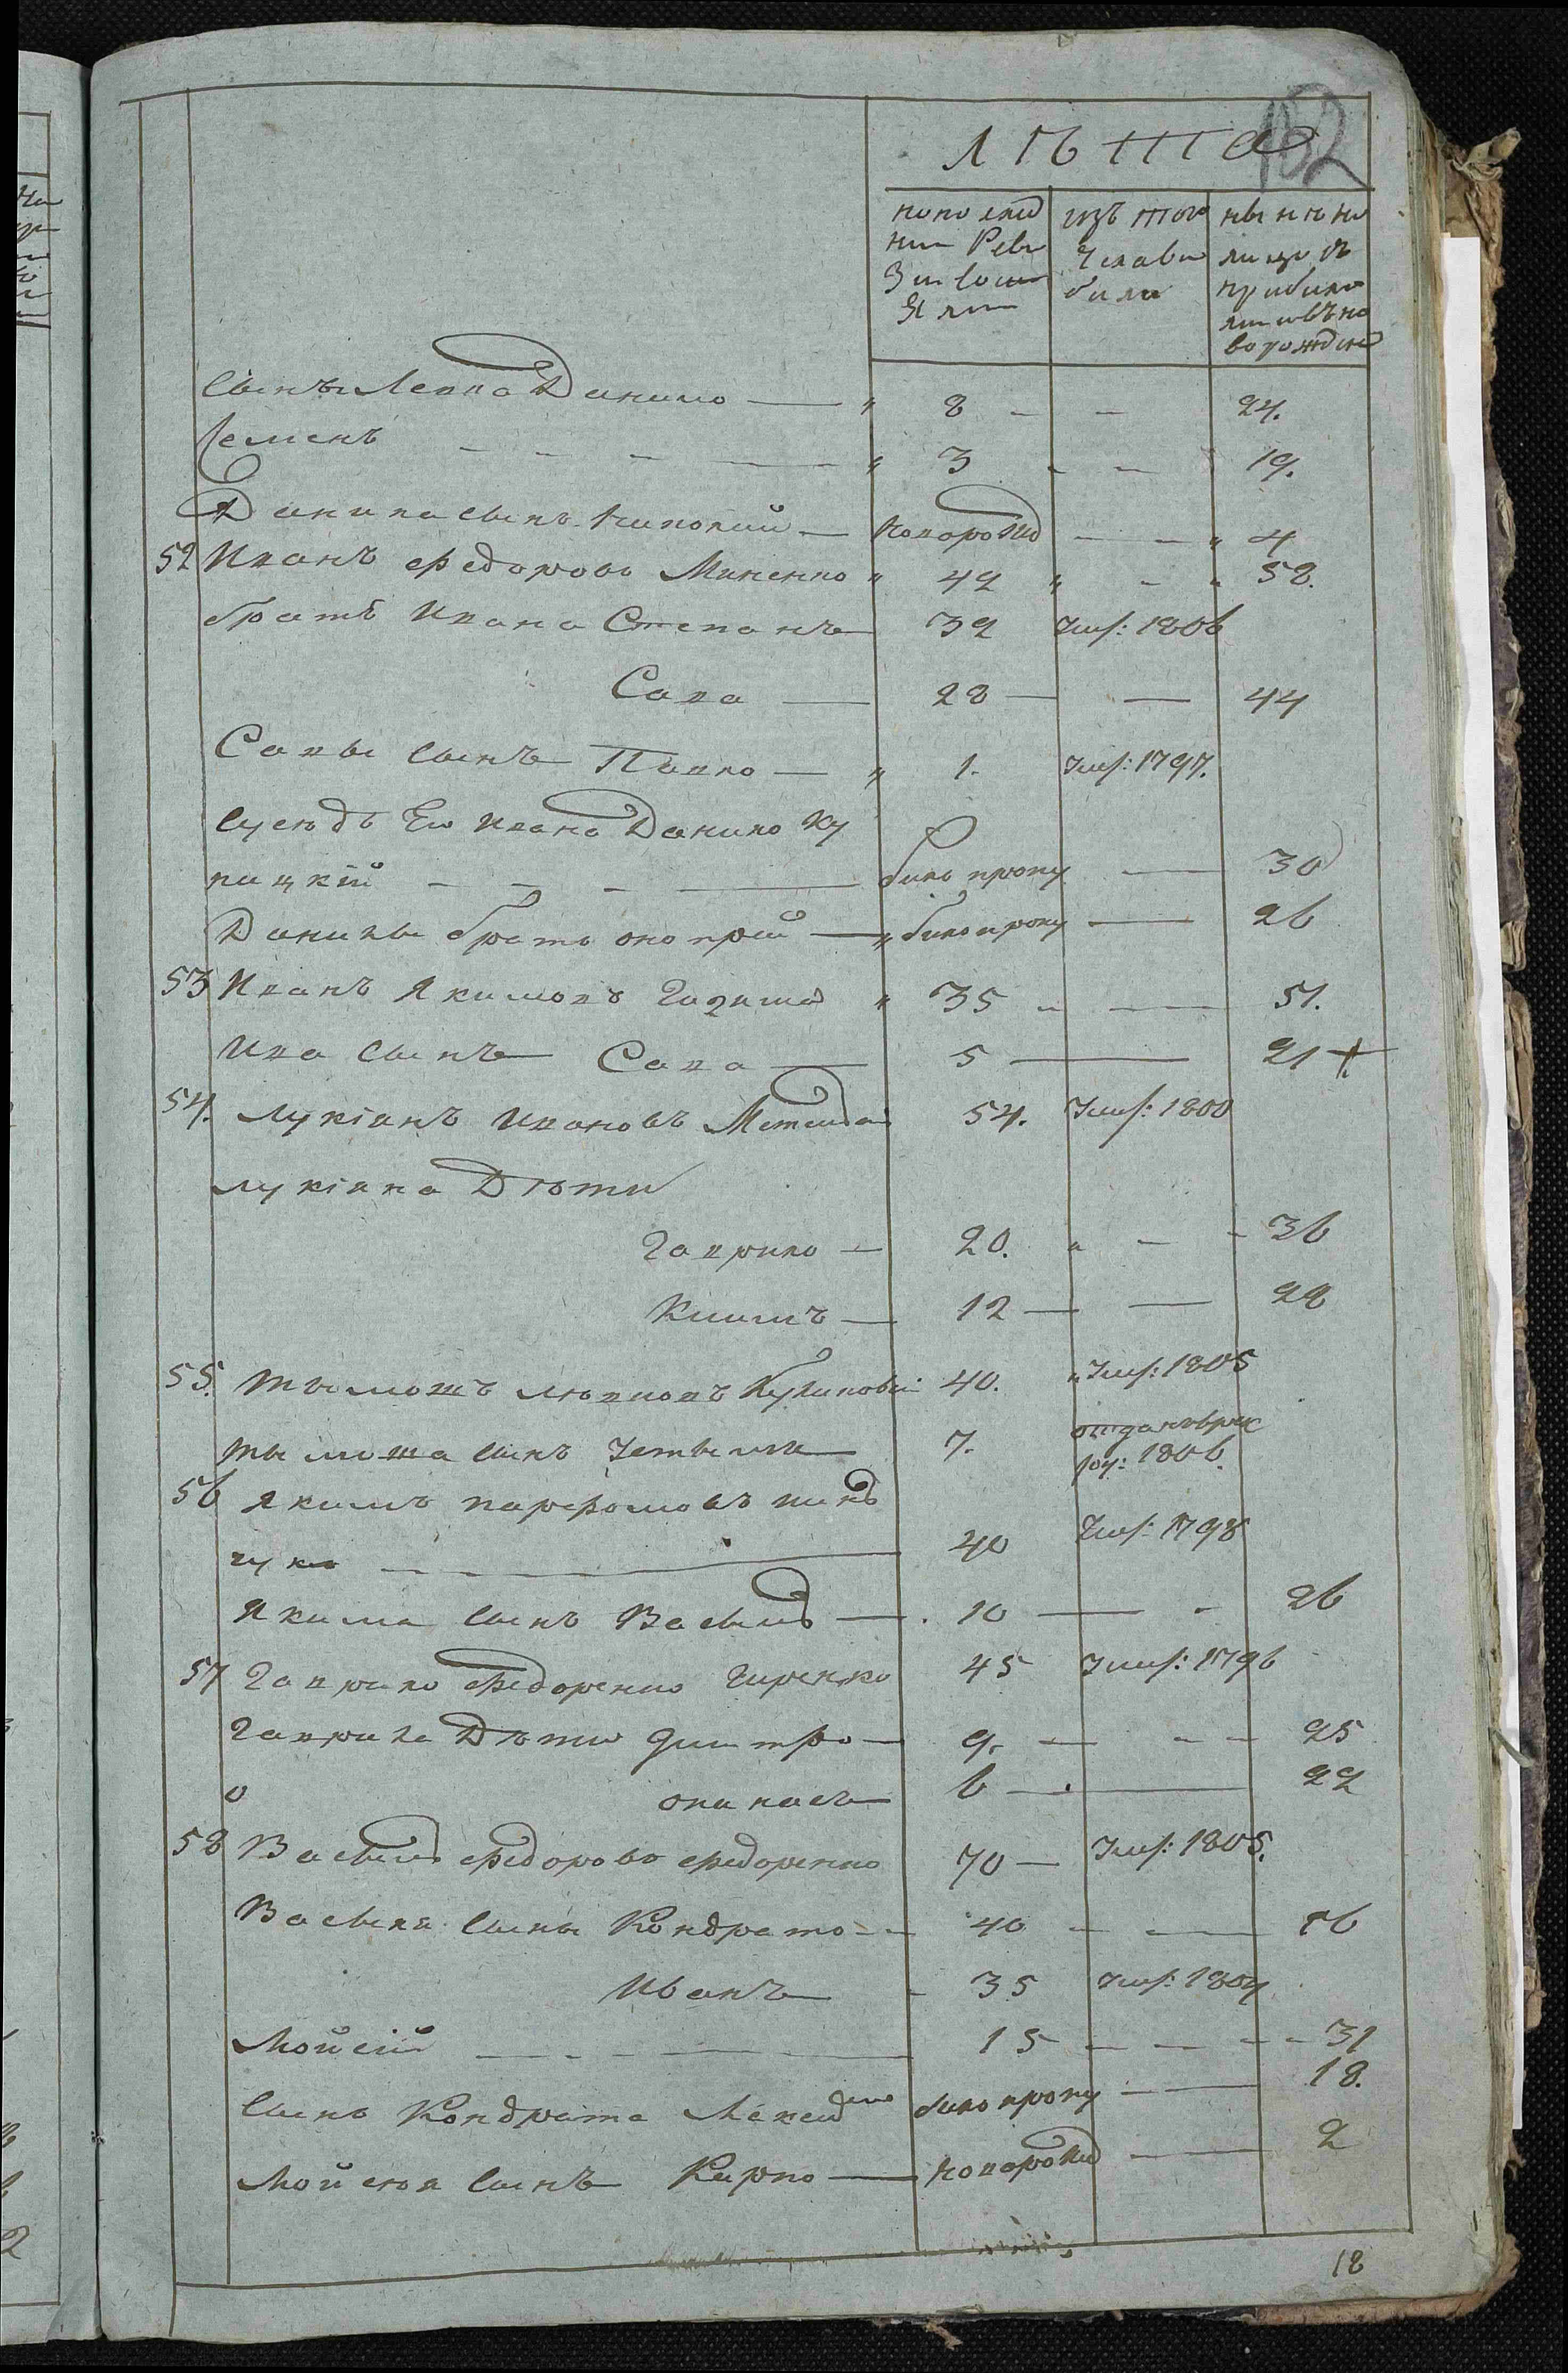 102
Лѣта
По последней Ревизии состояли
изъ того числа выбыли
нынѣ на лицо съ прибылыми и въновь рожденными
Сынъ Левка Данило — " 8 — — 24.
Семенъ — — — — " 3 — — 19.
Данила сынъ Николай — новорожд — — " 4
52 Иванъ Федоровъ Миненко " 42 " — " 58.
братъ Ивана Степанъ 32 умр: 1806
Сава — 28 — — 44
Савы сынъ Павло — " 1. умр: 1797.
Сусѣдъ Его Ивана Данило Ку
пицкій — — — — било пропу — 30
Данилы братъ Онопрей — " било пропу — 26
53 Иванъ Якимовъ " 35 — — 51.
Ива сынъ Сава — 5 — 21 +
54. Лукіанъ Ивановъ 54. умр: 1800
Лукіана Дѣти
Гаврило — 20. " — — 36
Климъ — 12 — — 28
55. Тымошъ 40. " умр: 1805
Тымоша сынъ 7. отданъ врек
рут: 1806.
56 Якимъ Парфомовъ
чукъ — — — 40 умр: 1798
Якима сынъ Василь — . 10 — — 26
57 Гаврило Федоренко 45 умр: 1796
Гаврила Дѣти Дмитро — 9. — — — 25
Опанасъ 6 — — 22
58 Василь Федоровъ Федоренко 70 — умр: 1805.
Василя сыны Кондратъ — — 40 — — 56
Иванъ — 35 умр: 1804
Мойсій — — — — 15 — — — — 31
Сынъ Кондрата било пропу — — 18.
Мойсея сынъ Карпо — новорожд — — 2
18